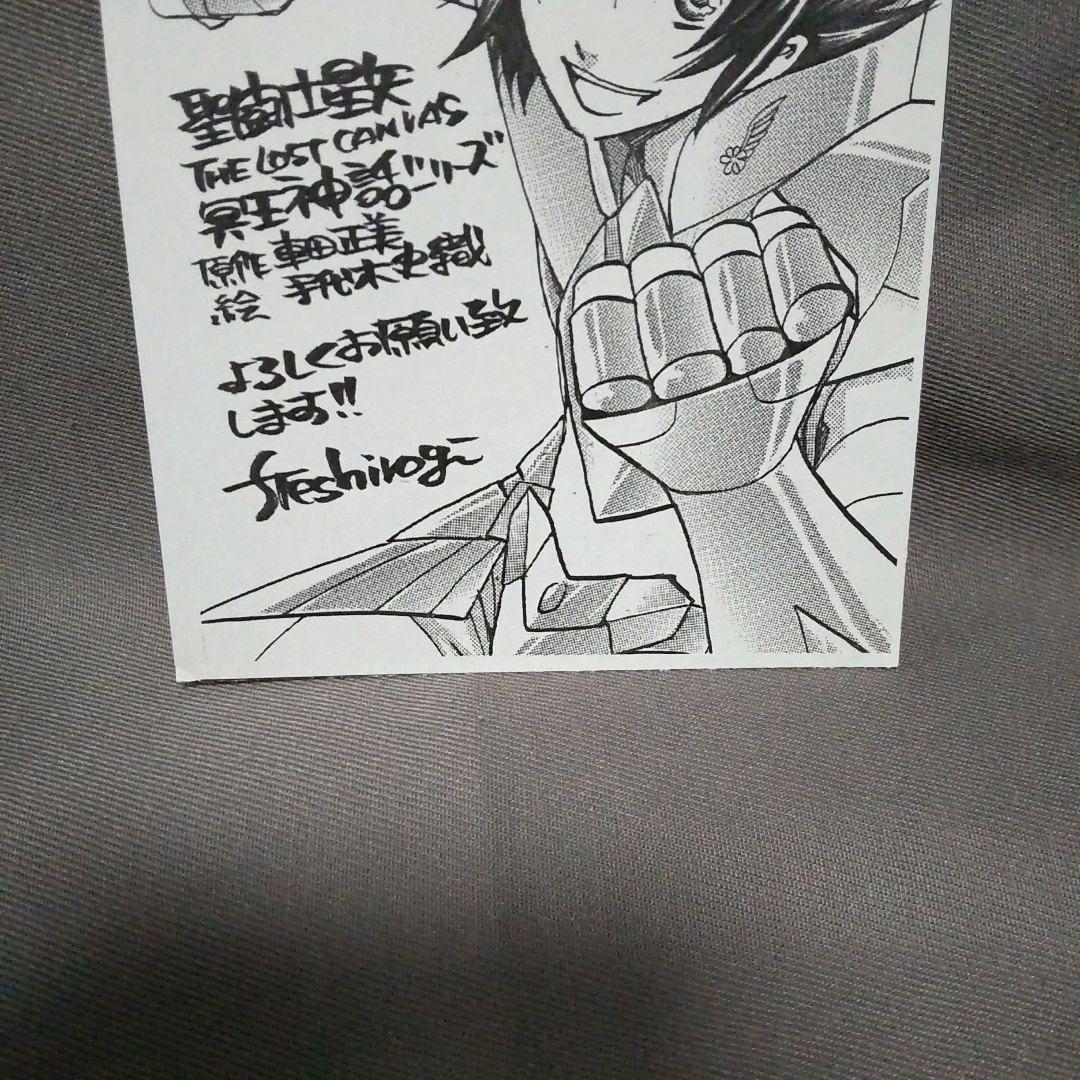 聖闘士星矢
THE LOST CANVAS
冥王神話シリーズ
原作 車田正美
絵 手代木史織
よろしくお願い致
します!!
STeshirogi